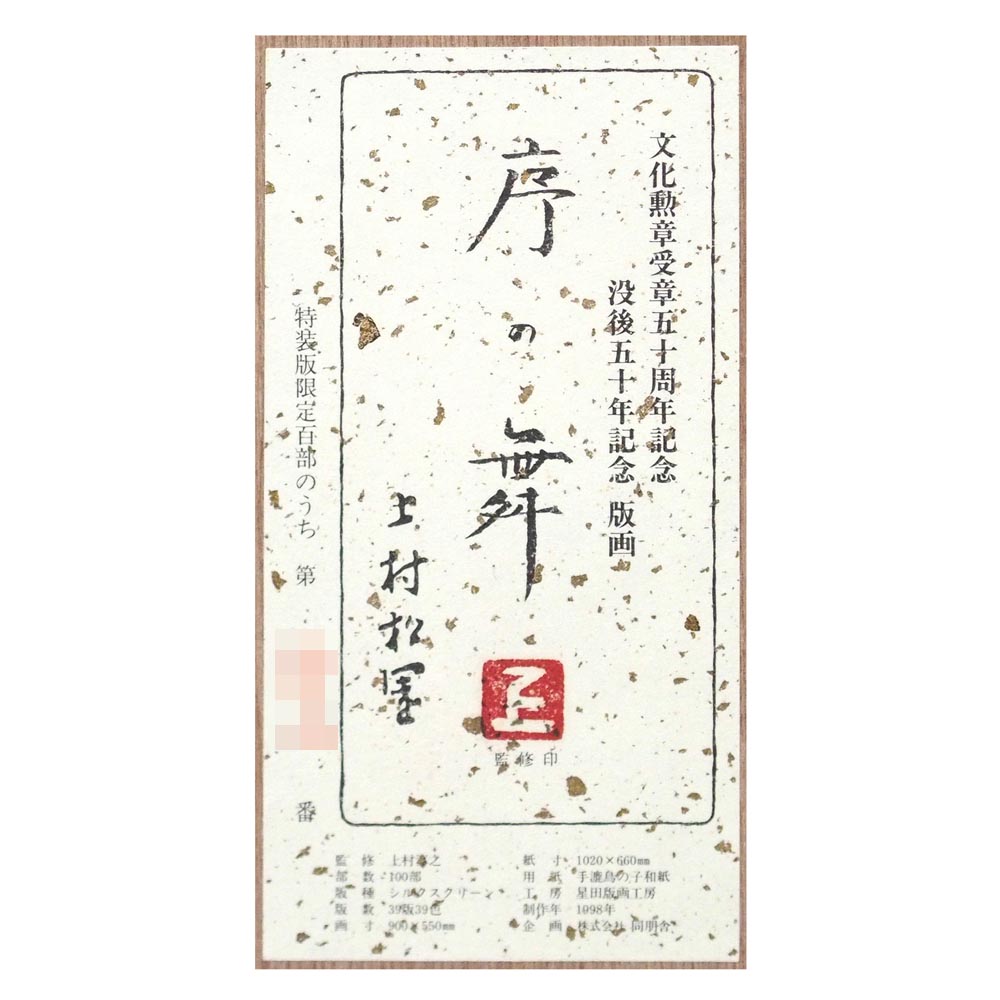 文化勲章受章五十周年記念
没後五十年記念 版画
序の舞
上村松園
監修印
特装版限定百部のうち 第 番
監修 上村淳之
部数 100部
版種 シルクスクリーン
版数 39版39色
画寸 900×550mm
紙寸 1020×660mm
用紙 手漉鳥の子和紙
工房 星田版画工房
制作年 1998年
企画 株式会社 同朋舎